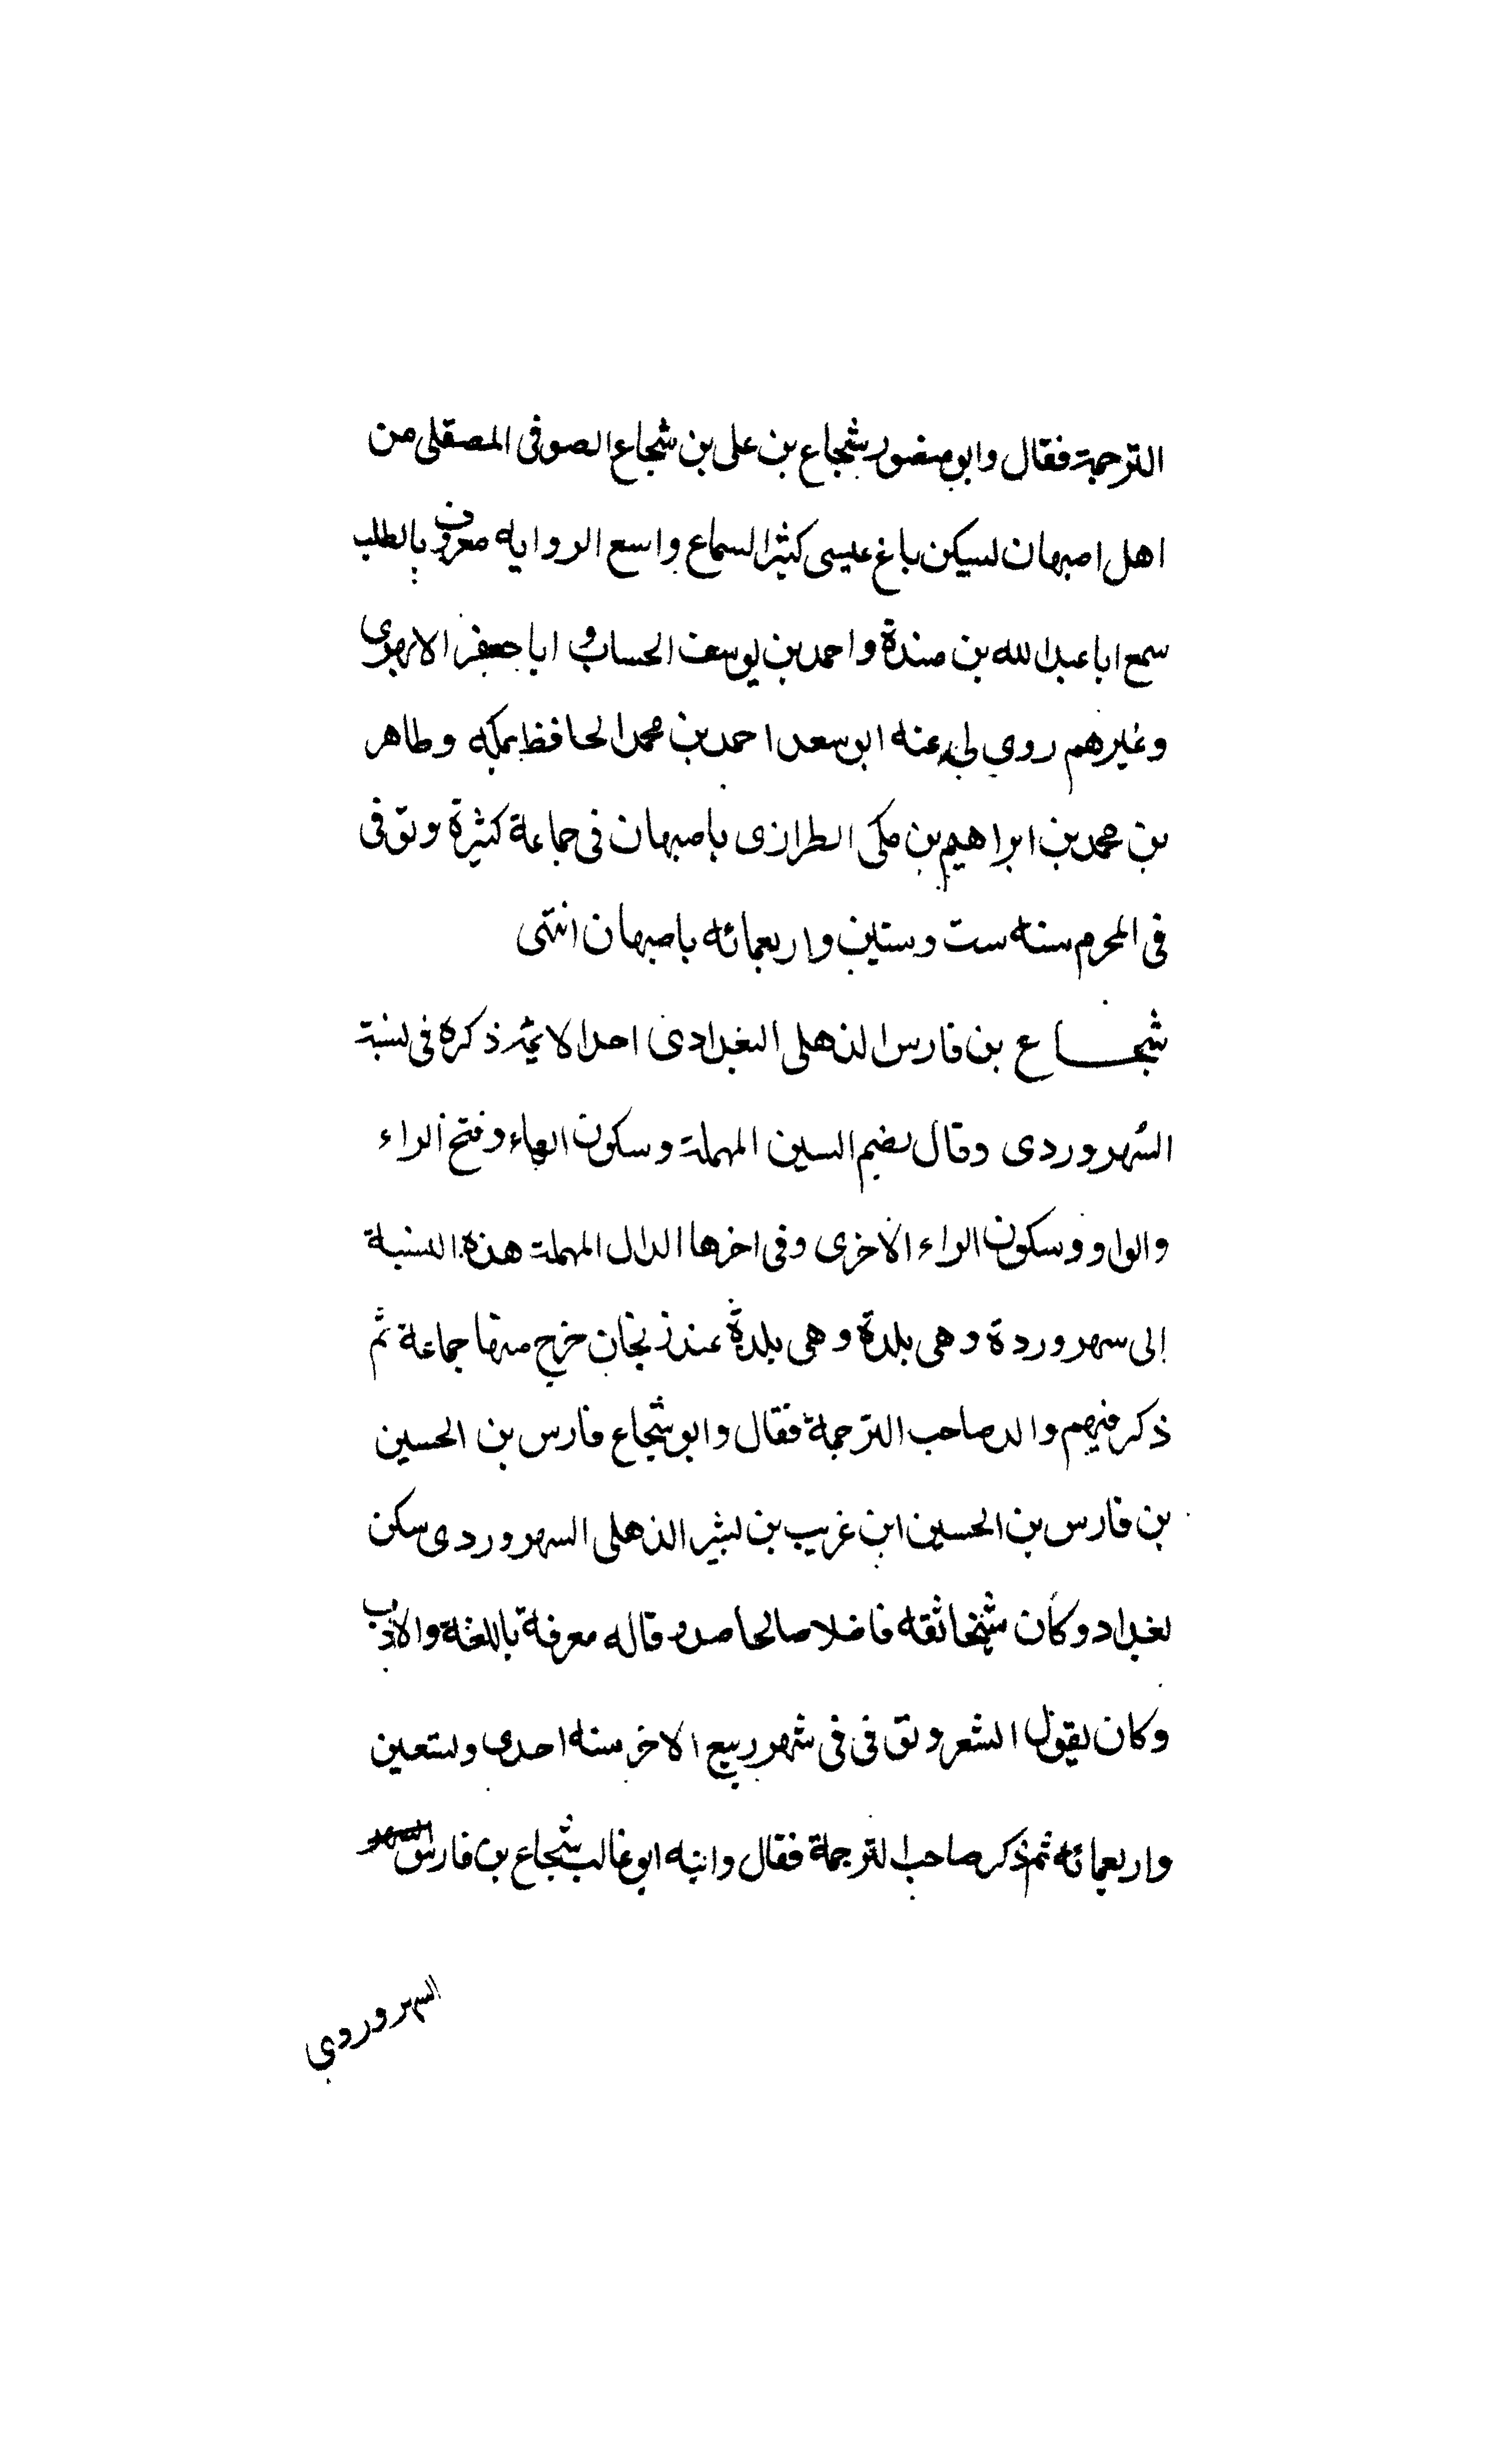 الترجمة فقال وابو منصور شجاع بن على بن شجاع الصوفى المصقلى من
اهل اصبهان يسكن باغ عيسى كثير السماع واسع الروايه معروف بالطلب
سمع ابا عبد الله بن مندة واحمد بن يوسف الحساب و ابا جعفر الابهرى
وغيرهم روى لى عنه ابن سعد احمد بن محمد الحافظ بمكه وطاهر
بن محمد بن ابراهيم بن مكى الطرازى باصبهان فى جماعة كثيرة وتوفى
فى المحرم سنه ست وستين واربعمائه باصبهان انتهى
شجاع بن فارس الذهلى البغدادى احد الائمة ذكره فى نسبة
السُهروردى وقال بضم السين المهملة وسكون الهاء وفتح الراء
والواو وسكون الراء الاخرى وفى اخرها الدال المهملة هذه النسبة
إلى سهروردة وهى بلدة وهى بلدة عند زنجان خرج منها جماعة ثم
ذكر فيهم والد صاحب الترجمة فقال وابو شجاع فارس بن الحسين
بن فارس بن الحسين ابن غريب بن بشير الذهلى السهروردى سكن
بغداد وكان شيخا ثقه فاضلا صالحا صدوقا له معرفة باللغة والادب
وكان يقول الشعر وتوفى فى شهر ربيع الاخر سنه احدى وتسعين
واربعمائه ثم ذكر صاحب الترجمة فقال وابنه ابو غالب شجاع بن فارس السهر
السهروردي